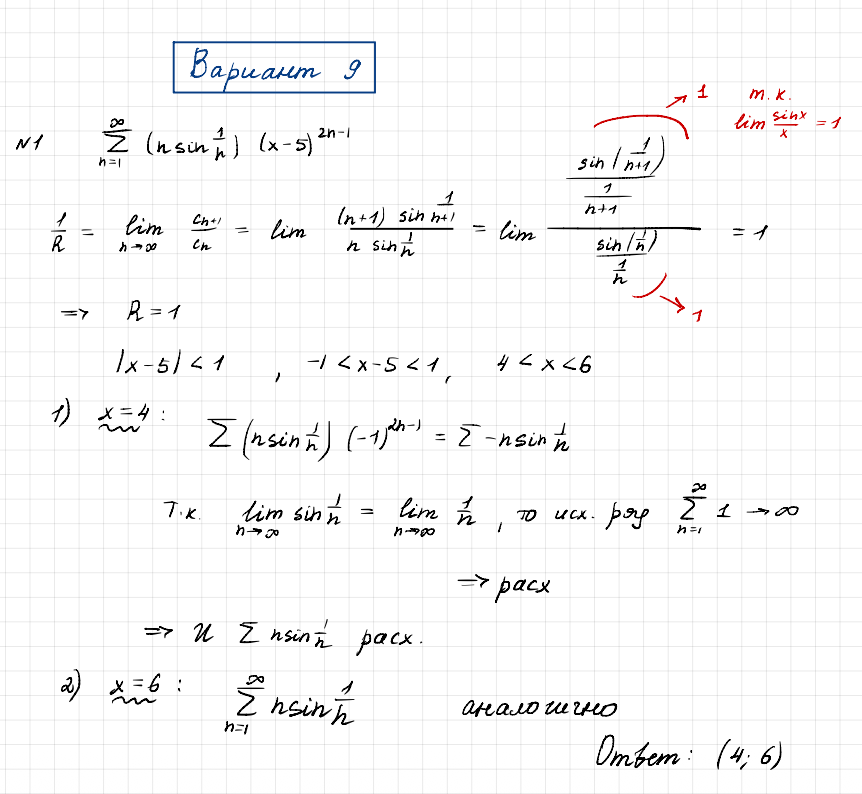 Вариант 9
№1 ∑_{n=1}^{∞} (n sin 1/n) (x-5)^{2n-1}
1/R = lim_{n→∞} c_{n+1}/c_n = lim ((n+1) sin 1/(n+1))/(n sin 1/n) = lim (sin(1/(n+1))/(1/(n+1)))/(sin(1/n)/(1/n)) = 1
→ 1 т.к. lim sinx/x = 1
→ 1
=> R = 1
|x-5| < 1 , -1 < x-5 < 1, 4 < x < 6
1) x=4 : ∑ (n sin 1/n) (-1)^{2n-1} = ∑ -n sin 1/n
Т.к. lim_{n→∞} sin 1/n = lim_{n→∞} 1/n , то исх. ряд ∑_{n=1}^{∞} 1 → ∞
=> расх
=> и ∑ n sin 1/n расх.
2) x=6 : ∑_{n=1}^{∞} n sin 1/n аналогично
Ответ: (4; 6)